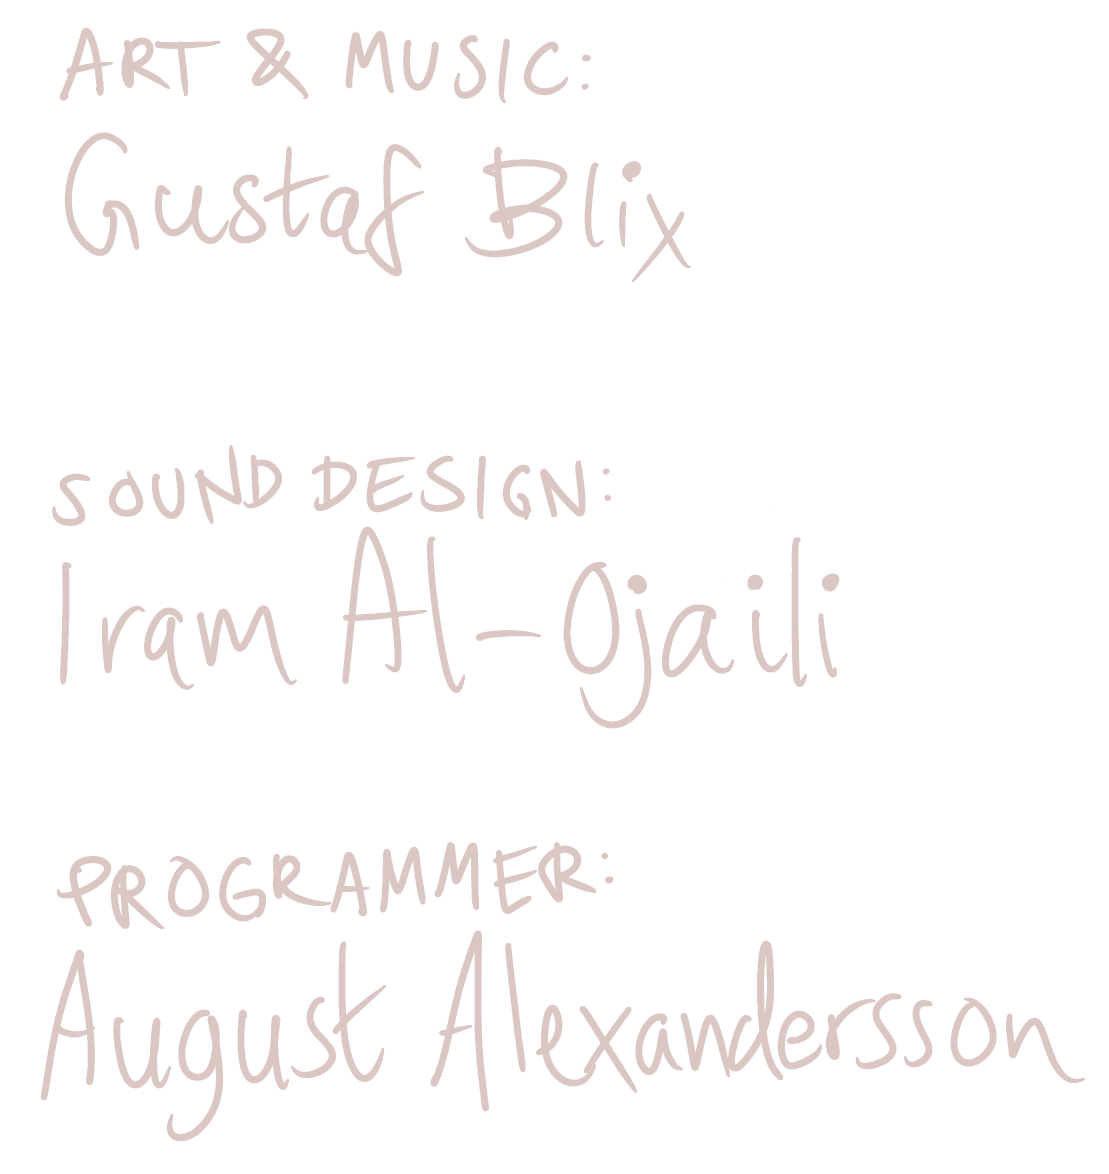 ART & MUSIC:
Gustaf Blix
SOUND DESIGN:
Iram Al-Ojaili
PROGRAMMER:
August Alexandersson